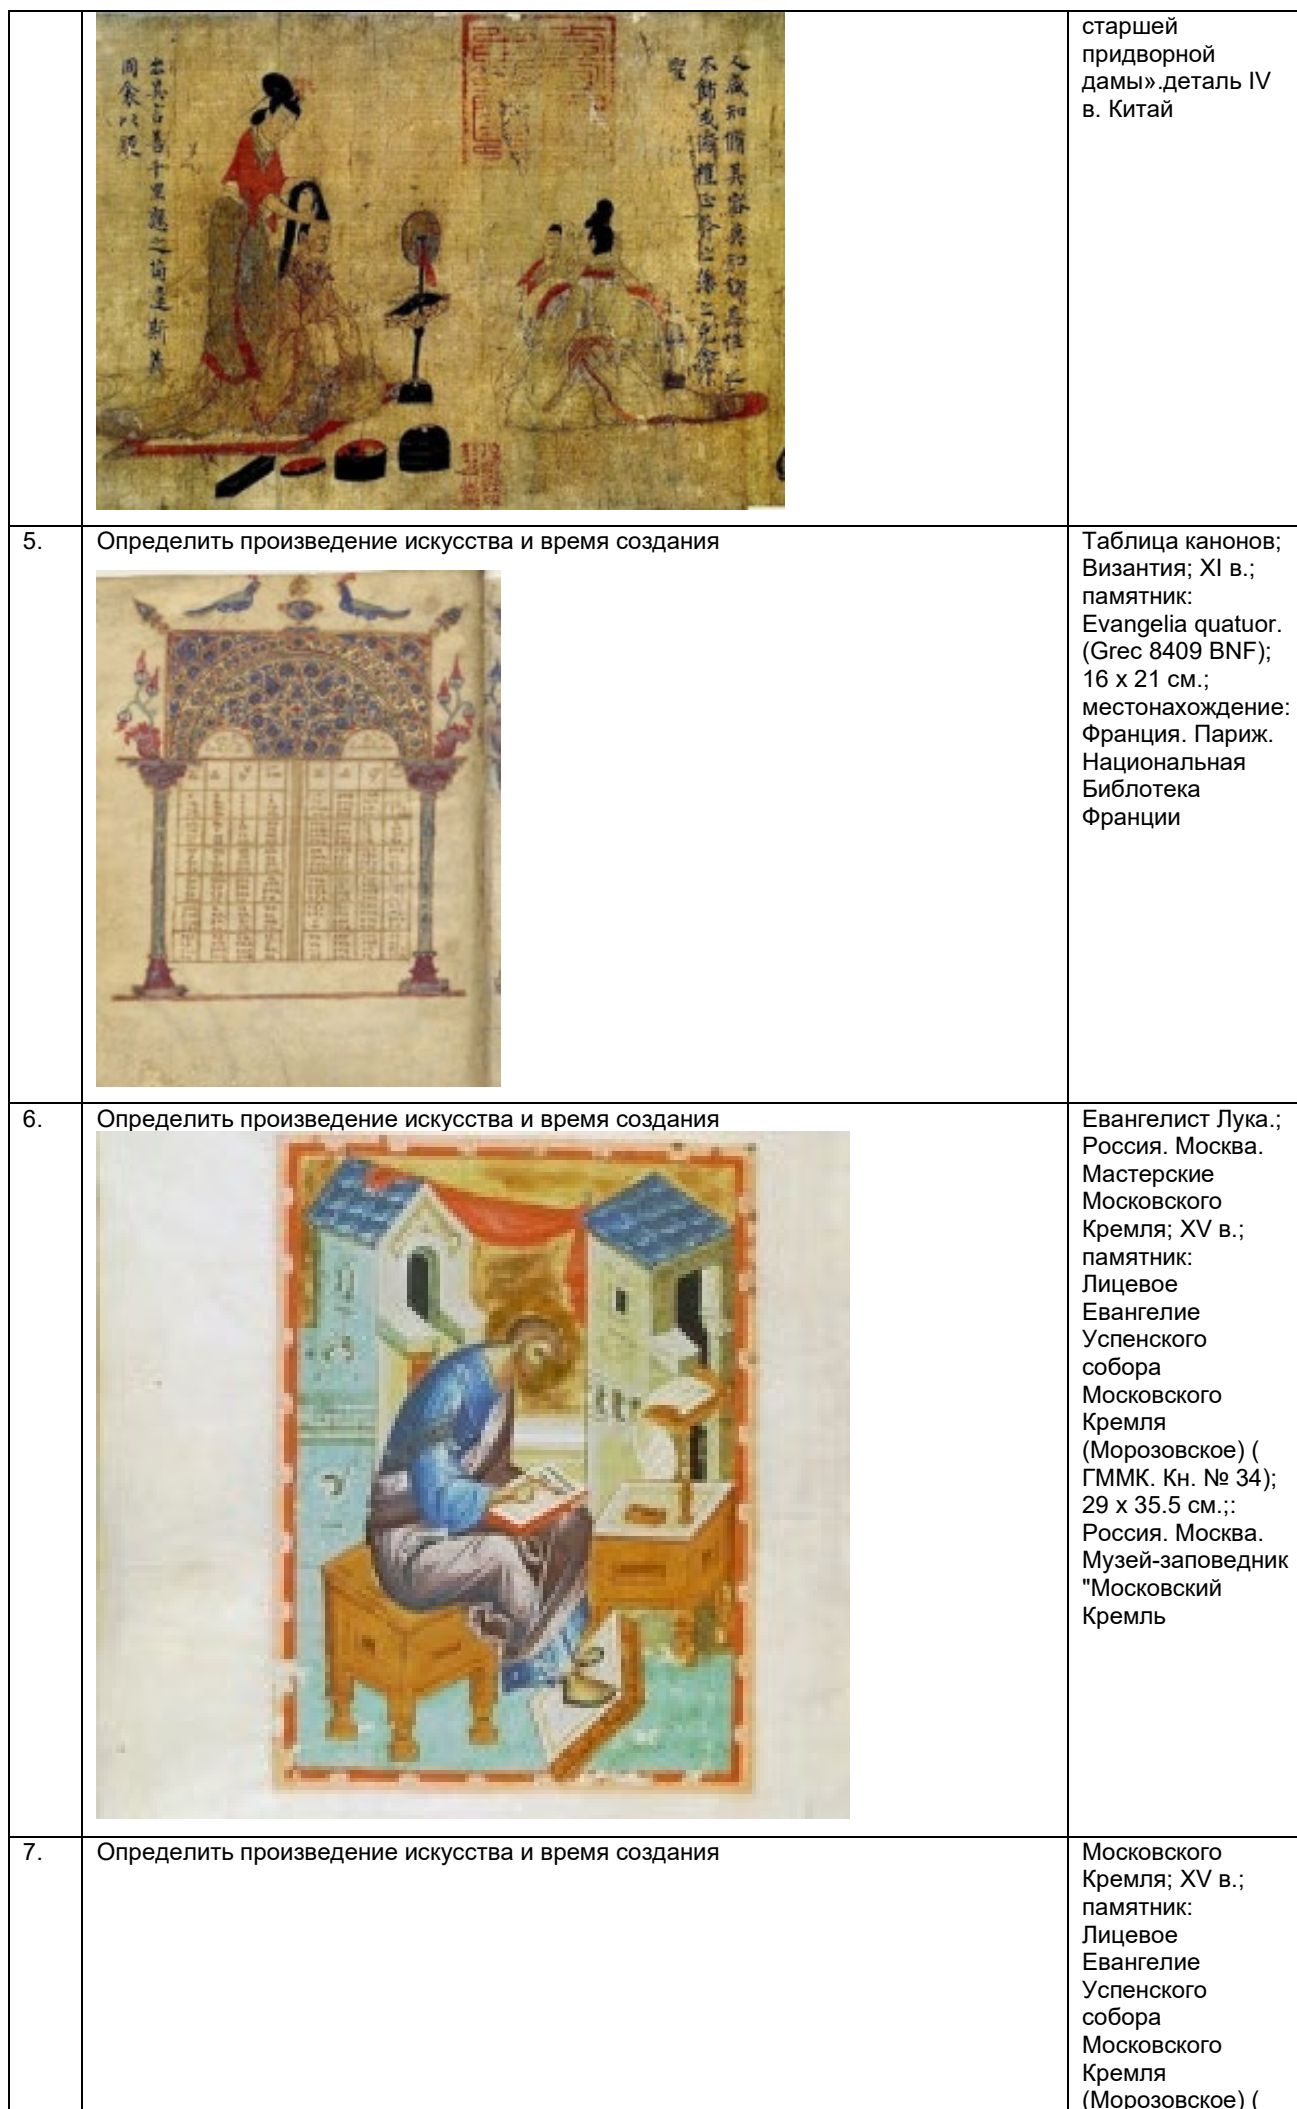 старшей
придворной
дамы».деталь IV
в. Китай
5.
Определить произведение искусства и время создания
Таблица канонов;
Византия; XI в.;
памятник:
Evangelia quatuor.
(Grec 8409 BNF);
16 x 21 см.;
местонахождение:
Франция. Париж.
Национальная
Библотека
Франции
6.
Определить произведение искусства и время создания
Евангелист Лука.;
Россия. Москва.
Мастерские
Московского
Кремля; XV в.;
памятник:
Лицевое
Евангелие
Успенского
собора
Московского
Кремля
(Морозовское) (
ГММК. Кн. № 34);
29 x 35.5 см.;:
Россия. Москва.
Музей-заповедник
"Московский
Кремль
7.
Определить произведение искусства и время создания
Московского
Кремля; XV в.;
памятник:
Лицевое
Евангелие
Успенского
собора
Московского
Кремля
(Морозовское) (